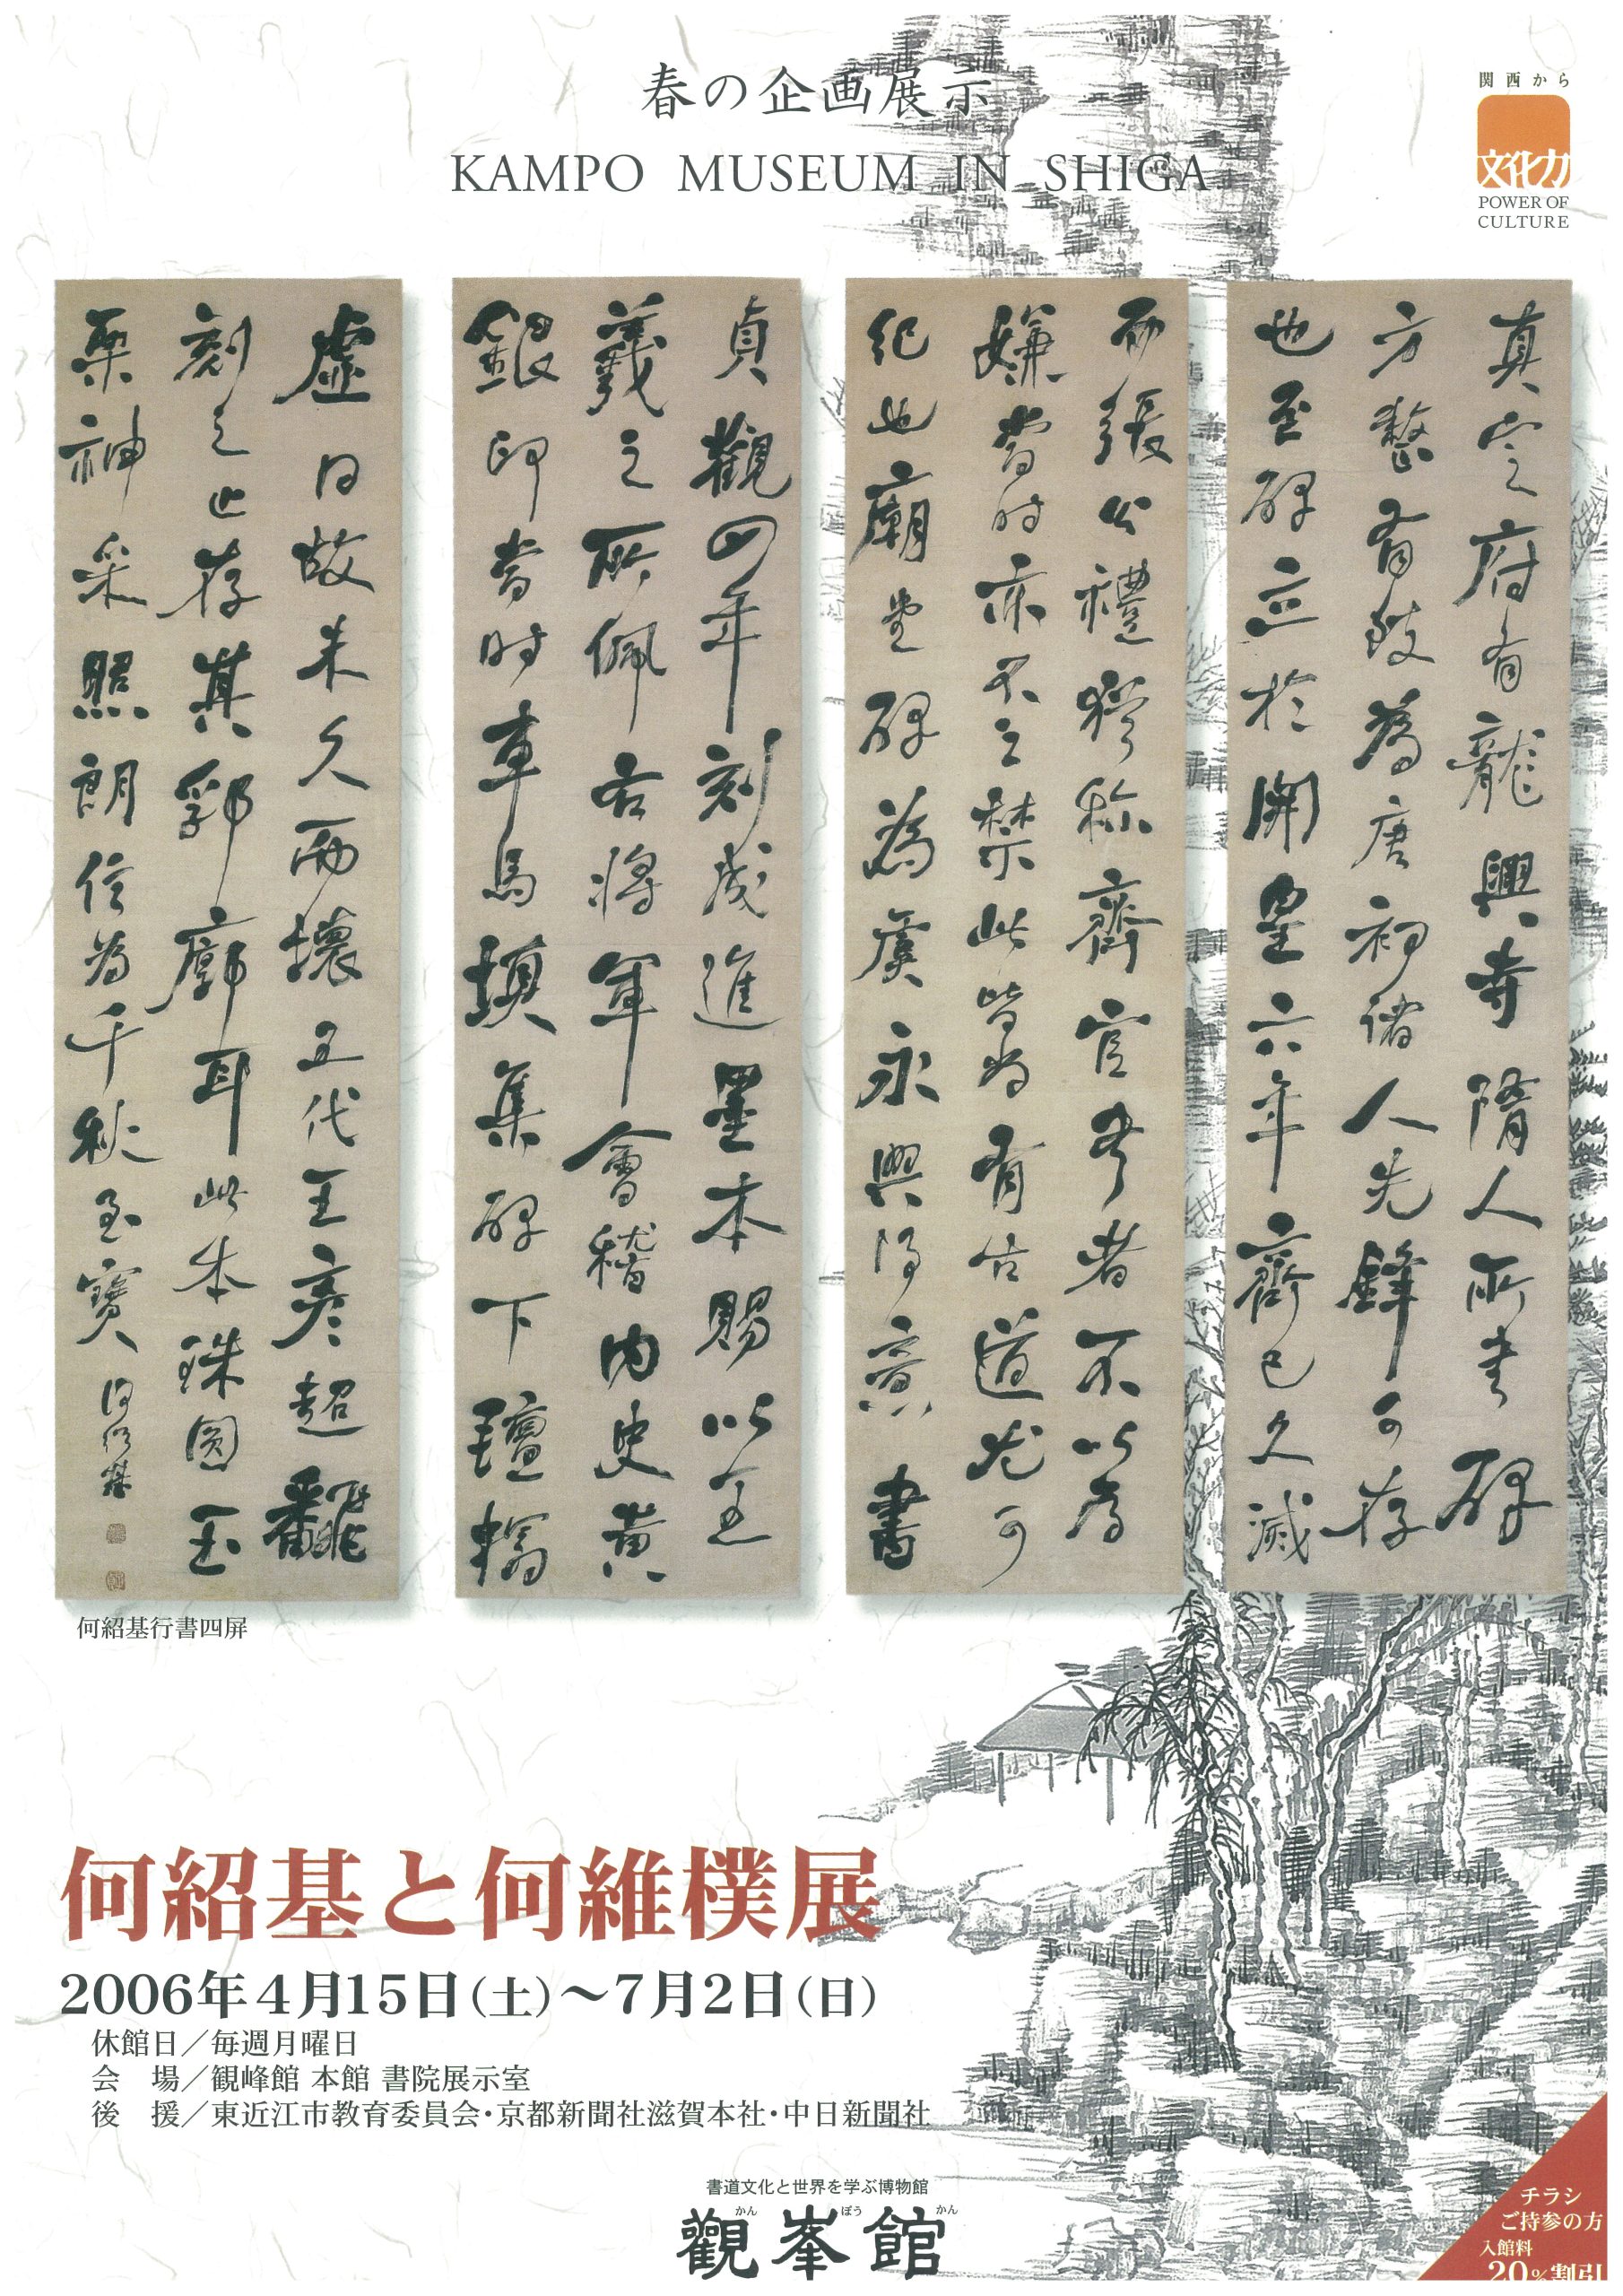 春の企画展示
KAMPO MUSEUM IN SHIGA
関西から
文化力
POWER OF
CULTURE
真定府有龍興寺隋人所書碑
方整有致為唐初諸人先鋒可存
也至碑立於開皇六年齊已久滅
而張公禮猶稱齊官書者不以為
嫌當時亦不之禁此皆尚有古道尤可
紀也廟堂碑為虞永興得意書
貞觀四年刻成進墨本賜以王
羲之所佩右將軍會稽内史黄
銀印當時車馬填集碑下氊搨
虚日故未久而壞五代王彦超翻
刻之止存其郛廓耳此本珠圓玉
栗神采照朗信為千秋至寶 何紹基
何紹基行書四屏
何紹基と何維樸展
2006年4月15日(土)〜7月2日(日)
休館日／毎週月曜日
会 場／観峰館 本館 書院展示室
後 援／東近江市教育委員会・京都新聞社滋賀本社・中日新聞社
書道文化と世界を学ぶ博物館
觀峯館
かん ぽう かん
チラシ
ご持参の方
入館料
20%割引